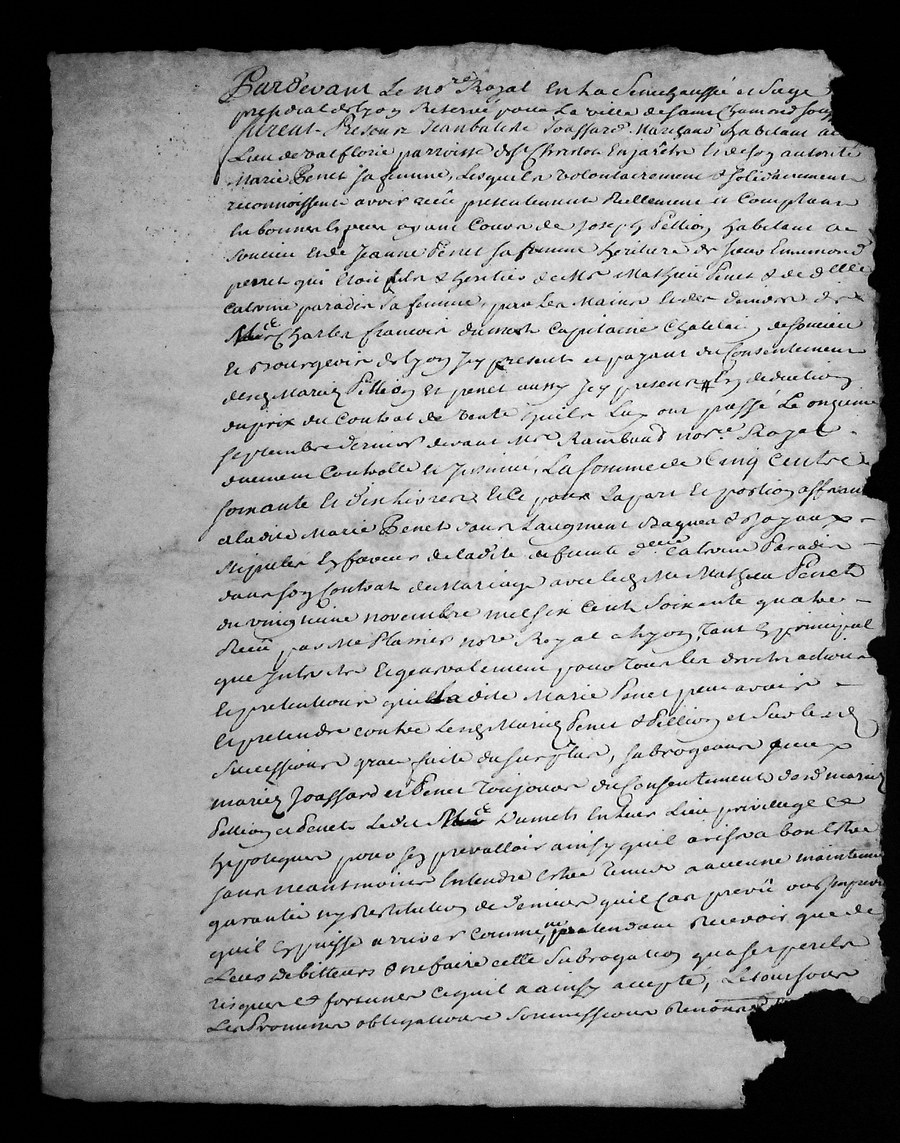 Pardevant Le no.re Royal En La Senechaussée et Siege
presidial de Lyon Reservé pour La ville de saint Chamond sous.
furent Presens Jean batiste Joassard Marchand habitant au
Lieu de valflorie parroisse de St Christot En jarêtz Et de son autorité
Marie Penet sa femme, Lesquels volontairement & solidairement
reconnoissent avoir reçû presentement Réellement et Comptant
En bonnes Especes ayant Cours de Joseph Pellion habitant au
Et de Jeanne Penet sa femme heritiere de sieur Ennemond
penet qui Etoit fils & heritier de Me Mathieu Penet & de dlle
Catrine paradis sa femme, par Les Mains Et des deniers de
Charles francois dumets Capitaine Chatelain de
Et Bourgeois de Lyon Icy present et payant du Consentement
desdt Mariez Pellion Et penet aussy Icy presens En deduction
du prix du Contrat de vente qu'ils Luy ont passé Le onzieme
septembre dernier devant Me Rambaud nore Royal
duement Controllé et Insinué, La somme de Cinq Cents
soixante Et dix Livres Et Ce pour La part Et portion afferant
a ladite Marie Penet dans L'augment Bagues & Joyaux
stipulés En faveur de ladite defunte dlle Catrine Paradis
dans son Contrat de Mariage avec Ledt Me Mathieu Penet
du vingt novembre mil six Cent Soixante quatre
Reçû par Me nore Royal a Lyon, tant En principal
que Interets Et generalement pour tous Les droits actions
Et pretentions que Ladite Marie Penet peut avoir
Et pretendre contre Lesdt Mariez Penet & Pellion et sur Lesd
successions grace faite du surplus, subrogeant Iceux
mariez Joassard et Penet toujours du Consentement desdt mariez
Pellion et Penet Ledit Dumets En Leur Lieu privilege Et
hypoteques pour s'en prevalloir ainsy quil avisera bon Estre
sans neantmoins Entendre Estre tenus a aucune maintenue
garantie ny Restitution de deniers quel Cas prevû ou Imprevû
qu'il En puisse arriver Comme ne pretendant Recevoir que de
Leurs Debitteurs & ne faire cette Subrogation qu'a ses perils
risques Et fortunes Ce qu'il a ainsy accepté, Le tout sous
Les Promesses obligations Soumissions Renon